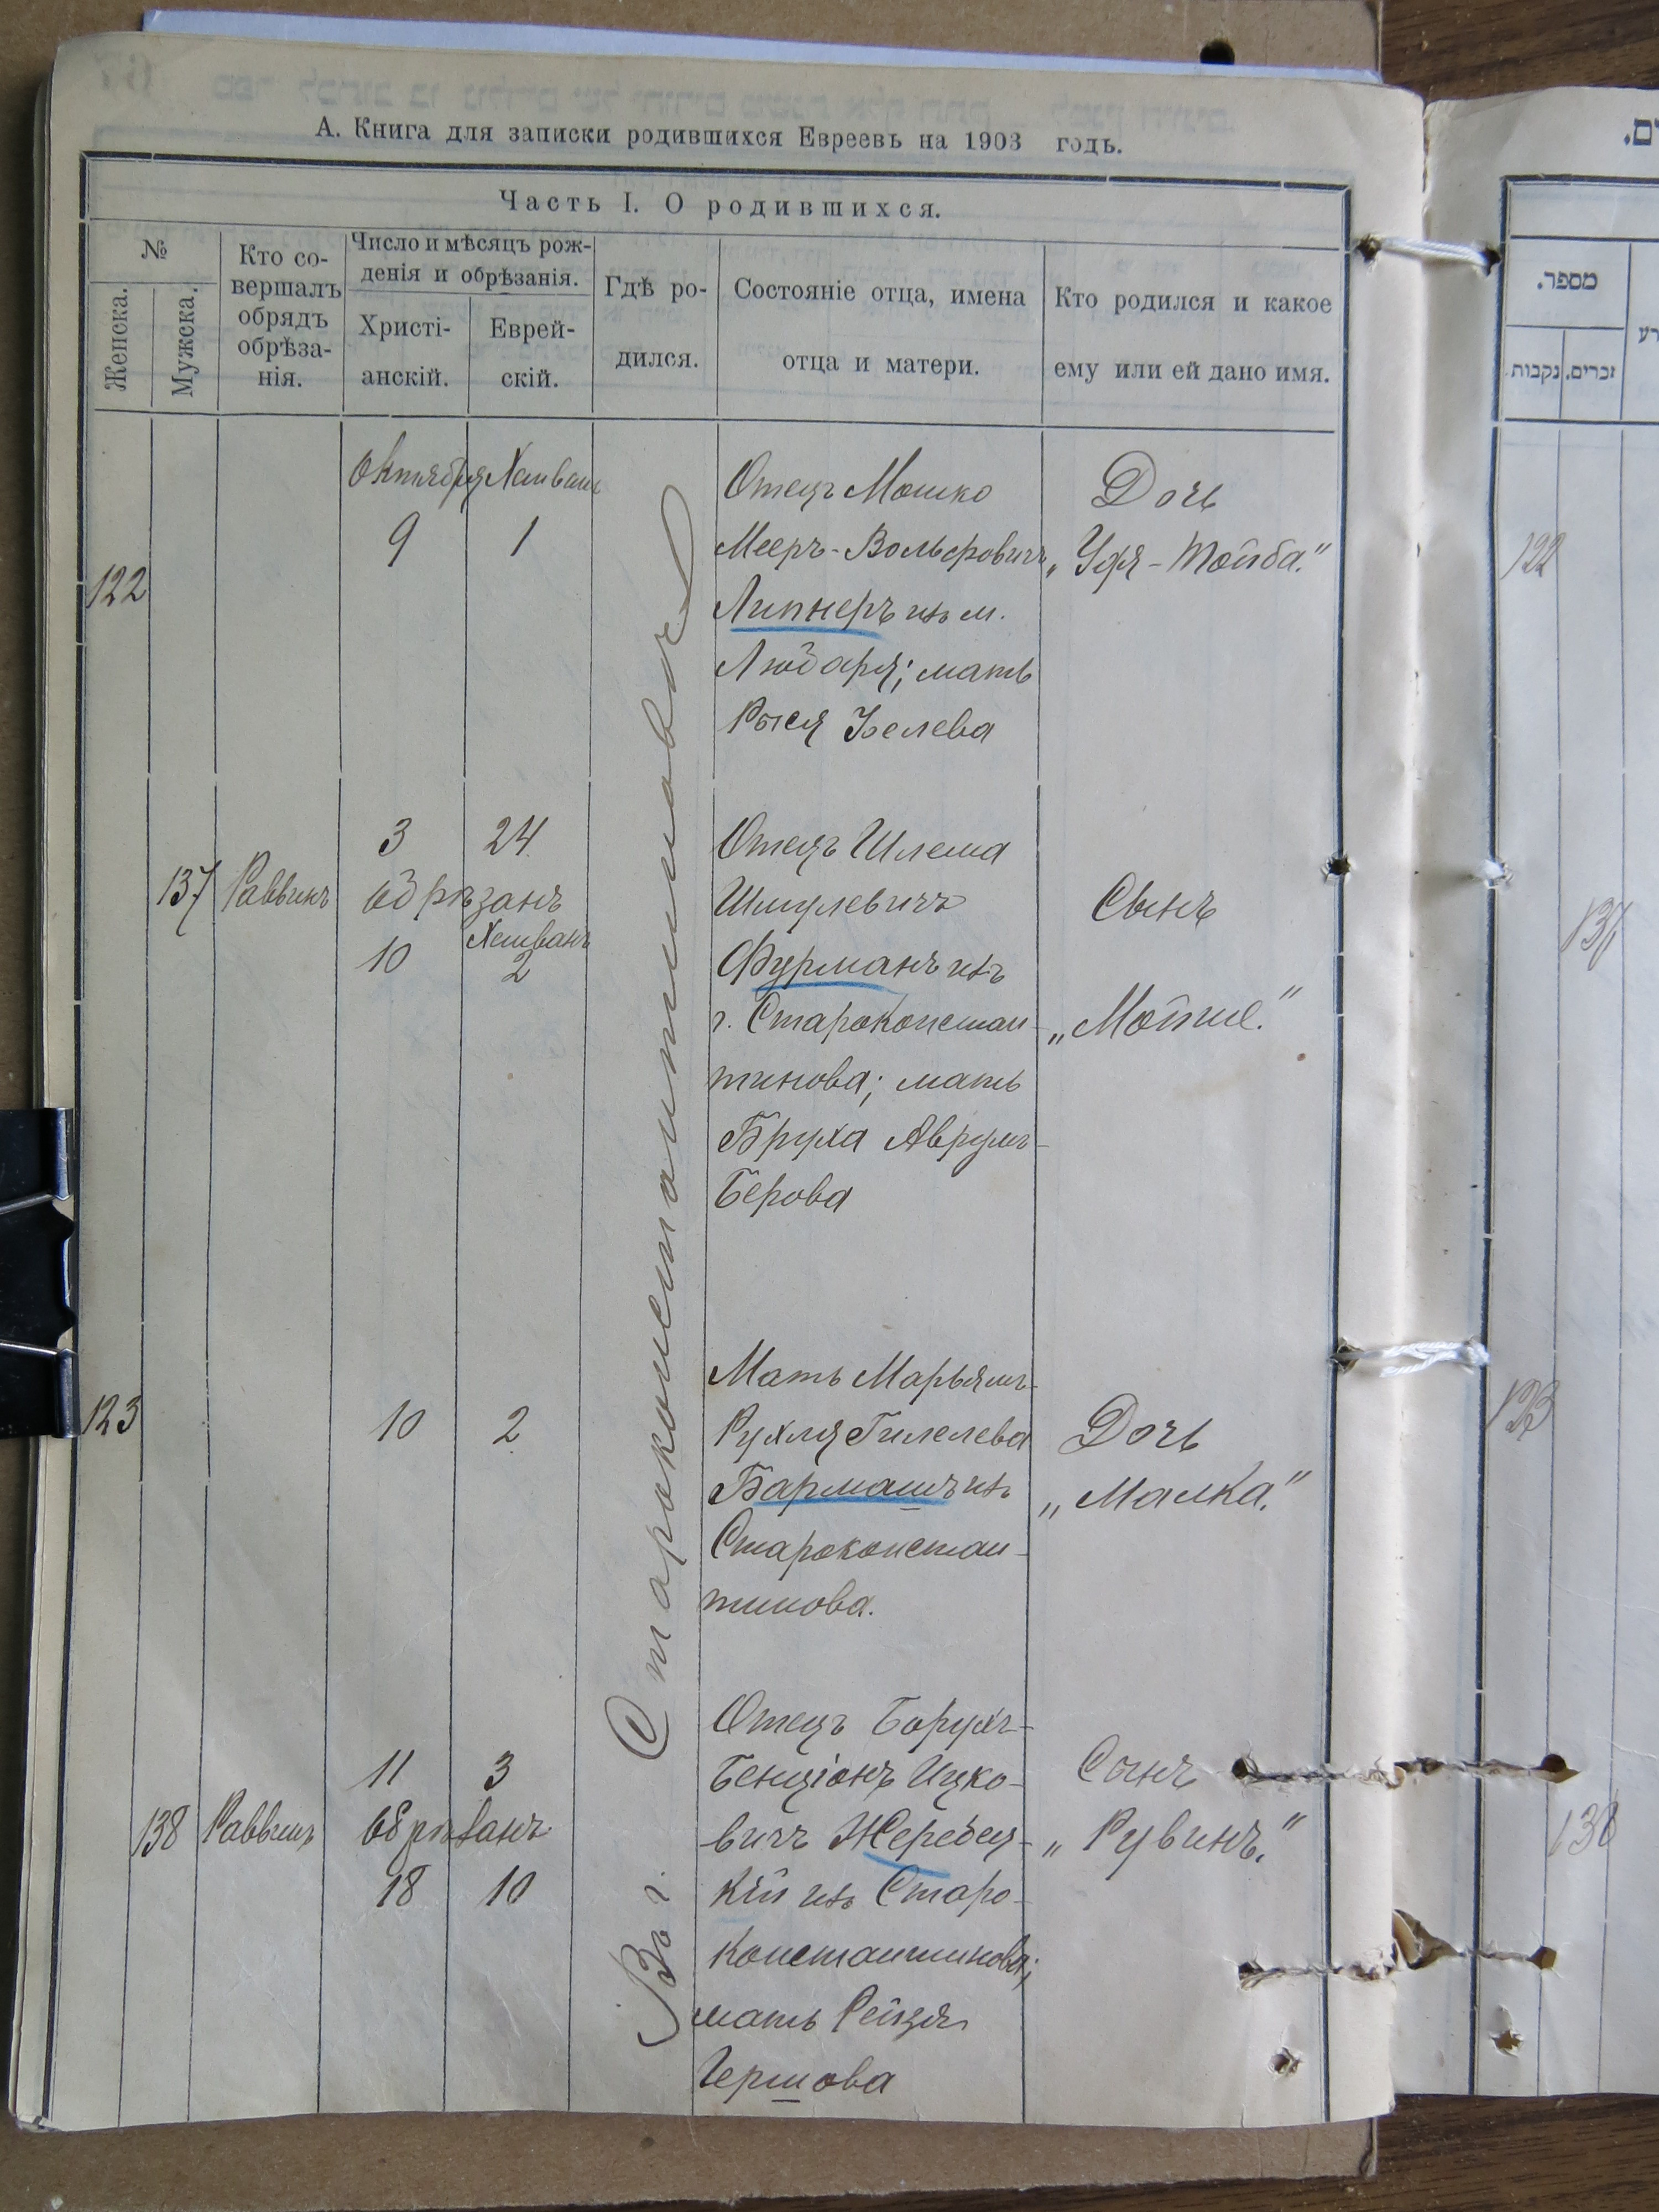 А. Книга для записки родившихся Евреевъ на 1903 годъ.
Часть I. О родившихся.
№
Женска.
Мужска.
Кто со-
вершалъ
обрядъ
обрѣза-
нія.
Число и мѣсяцъ рож-
денія и обрѣзанія.
Христі-
анскій.
Еврей-
скій.
Гдѣ ро-
дился.
Состояніе отца, имена
отца и матери.
Кто родился и какое
ему или ей дано имя.
122
Октября Хешванъ
9 1
Отецъ Мошко
Мееръ-Вольфовичъ
Липнеръ изъ м.
Любаря; мать
Рыся Іоелева
Дочь
„Удя-Тойба."
137 Раввинъ
3 24
обрѣзанъ
Хешванъ
10 2
Отецъ Шлема
Шмулевичъ
Фурманъ изъ
г. Староконстан-
тинова; мать
Бруха Аврумъ-
Берова
Сынъ
„Мотие."
123
10 2
Мать Марьямъ-
Рухля Гилелева
Бармашъ изъ
Староконстан-
тинова.
Дочь
„Малка."
138 Раввинъ
11 3
обрѣзанъ
18 10
Отецъ Борухъ-
Бенціонъ Ицко-
вичъ Жеребец-
кій изъ Старо-
константинова;
мать Рейзя
Гершова
Сынъ
„Рувинъ."
Въ г. Староконстантиновѣ
מספר.
נקבות.
זכרים.
122
137
123
138